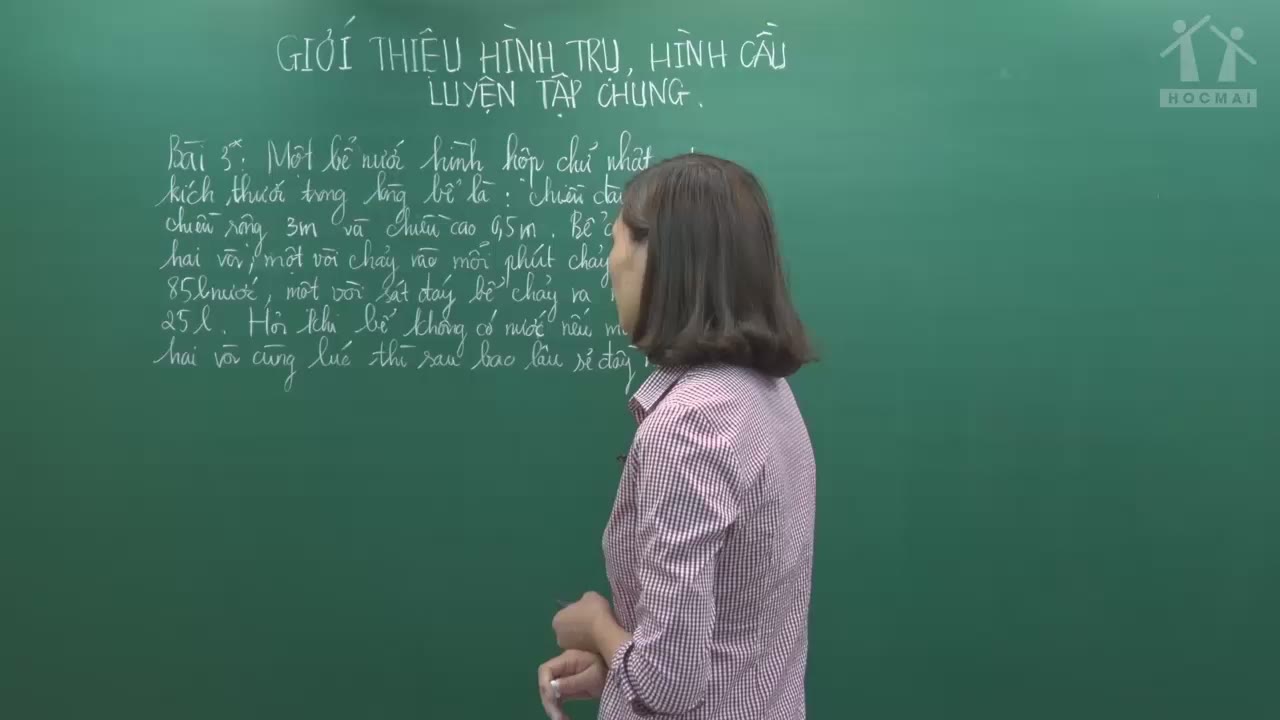 GIỚI THIỆU HÌNH TRỤ, HÌNH CẦU
LUYỆN TẬP CHUNG.
HOCMAI
Bài 3*: Một bể nước hình hộp chữ nhật
kích thước trong lòng bể là: chiều
chiều rộng 3m và chiều cao 0,5m. Bể
hai vòi, một vòi chảy vào mỗi phút chảy
85l nước, một vòi sát đáy bể chảy ra
25l. Hỏi khi bể không có nước nếu
hai vòi cùng lúc thì sau bao lâu sẽ đầy